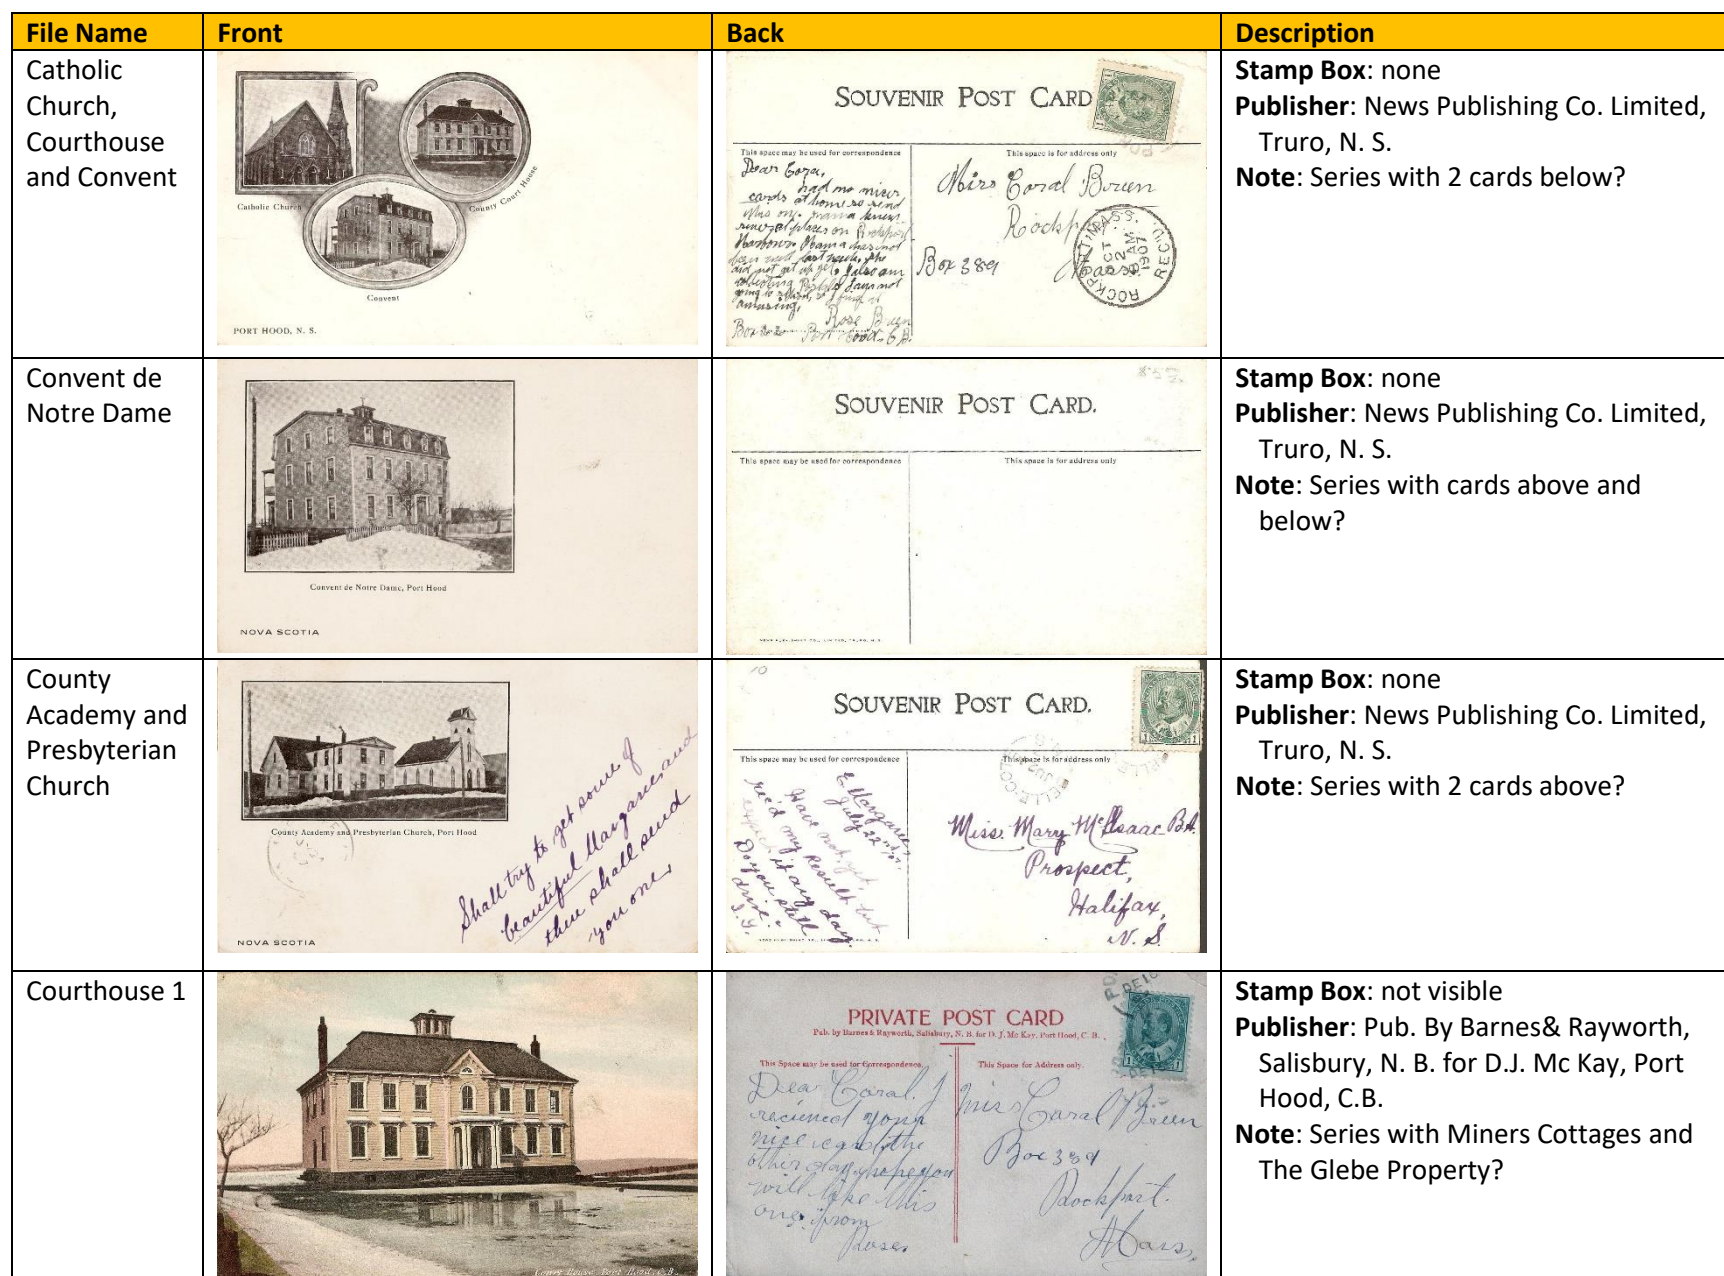 File Name Front Back Description
Catholic
Church,
Courthouse
and Convent
Catholic Church
County Court House
Convent
PORT HOOD, N. S.
SOUVENIR POST CARD
This space may be used for correspondence
This space is for address only
Dear Cora,
had no nicer
cards at home so send
this one. mama knew
several places on Rockport
Mama has not
been well last week, she
did not get up yet. I also am
collecting Postals I am not
going to school, so I find it
amusing.
Rose Breen
Box 22 Port Hood. C.B.
Miss Coral Breen
Rockport
Box 389
Mass.
ROCKPORT MASS.
OCT
2
AM
1907
REC'D
Stamp Box: none
Publisher: News Publishing Co. Limited,
Truro, N. S.
Note: Series with 2 cards below?
Convent de
Notre Dame
Convent de Notre Dame, Port Hood
NOVA SCOTIA
SOUVENIR POST CARD.
This space may be used for correspondence
This space is for address only
NEWS PUBLISHING CO., LIMITED, TRURO, N.S.
Stamp Box: none
Publisher: News Publishing Co. Limited,
Truro, N. S.
Note: Series with cards above and
below?
County
Academy and
Presbyterian
Church
County Academy and Presbyterian Church, Port Hood
Shall try to get some of
beautiful Margaree and
then shall send
you one.
NOVA SCOTIA
10
SOUVENIR POST CARD.
This space may be used for correspondence
This space is for address only
E. Margaree,
July 22nd
Have not yet
rec'd my Result but
expect it any day.
Do you still
drive?
Miss. Mary McIsaac B.A.
Prospect,
Halifax,
N. S.
Stamp Box: none
Publisher: News Publishing Co. Limited,
Truro, N. S.
Note: Series with 2 cards above?
Courthouse 1
Court House Port Hood, C.B.
PRIVATE POST CARD
Pub. by Barnes & Rayworth, Salisbury, N. B. for D. J. Mc Kay, Port Hood, C. B.
This Space may be used for Correspondence.
This Space for Address only.
Dear Coral. I
recieved your
nice card the
other day, hope you
will like this
one. from
Rose.
Miss Coral Breen
Box 389
Rockport.
Mass.
Stamp Box: not visible
Publisher: Pub. By Barnes& Rayworth,
Salisbury, N. B. for D.J. Mc Kay, Port
Hood, C.B.
Note: Series with Miners Cottages and
The Glebe Property?